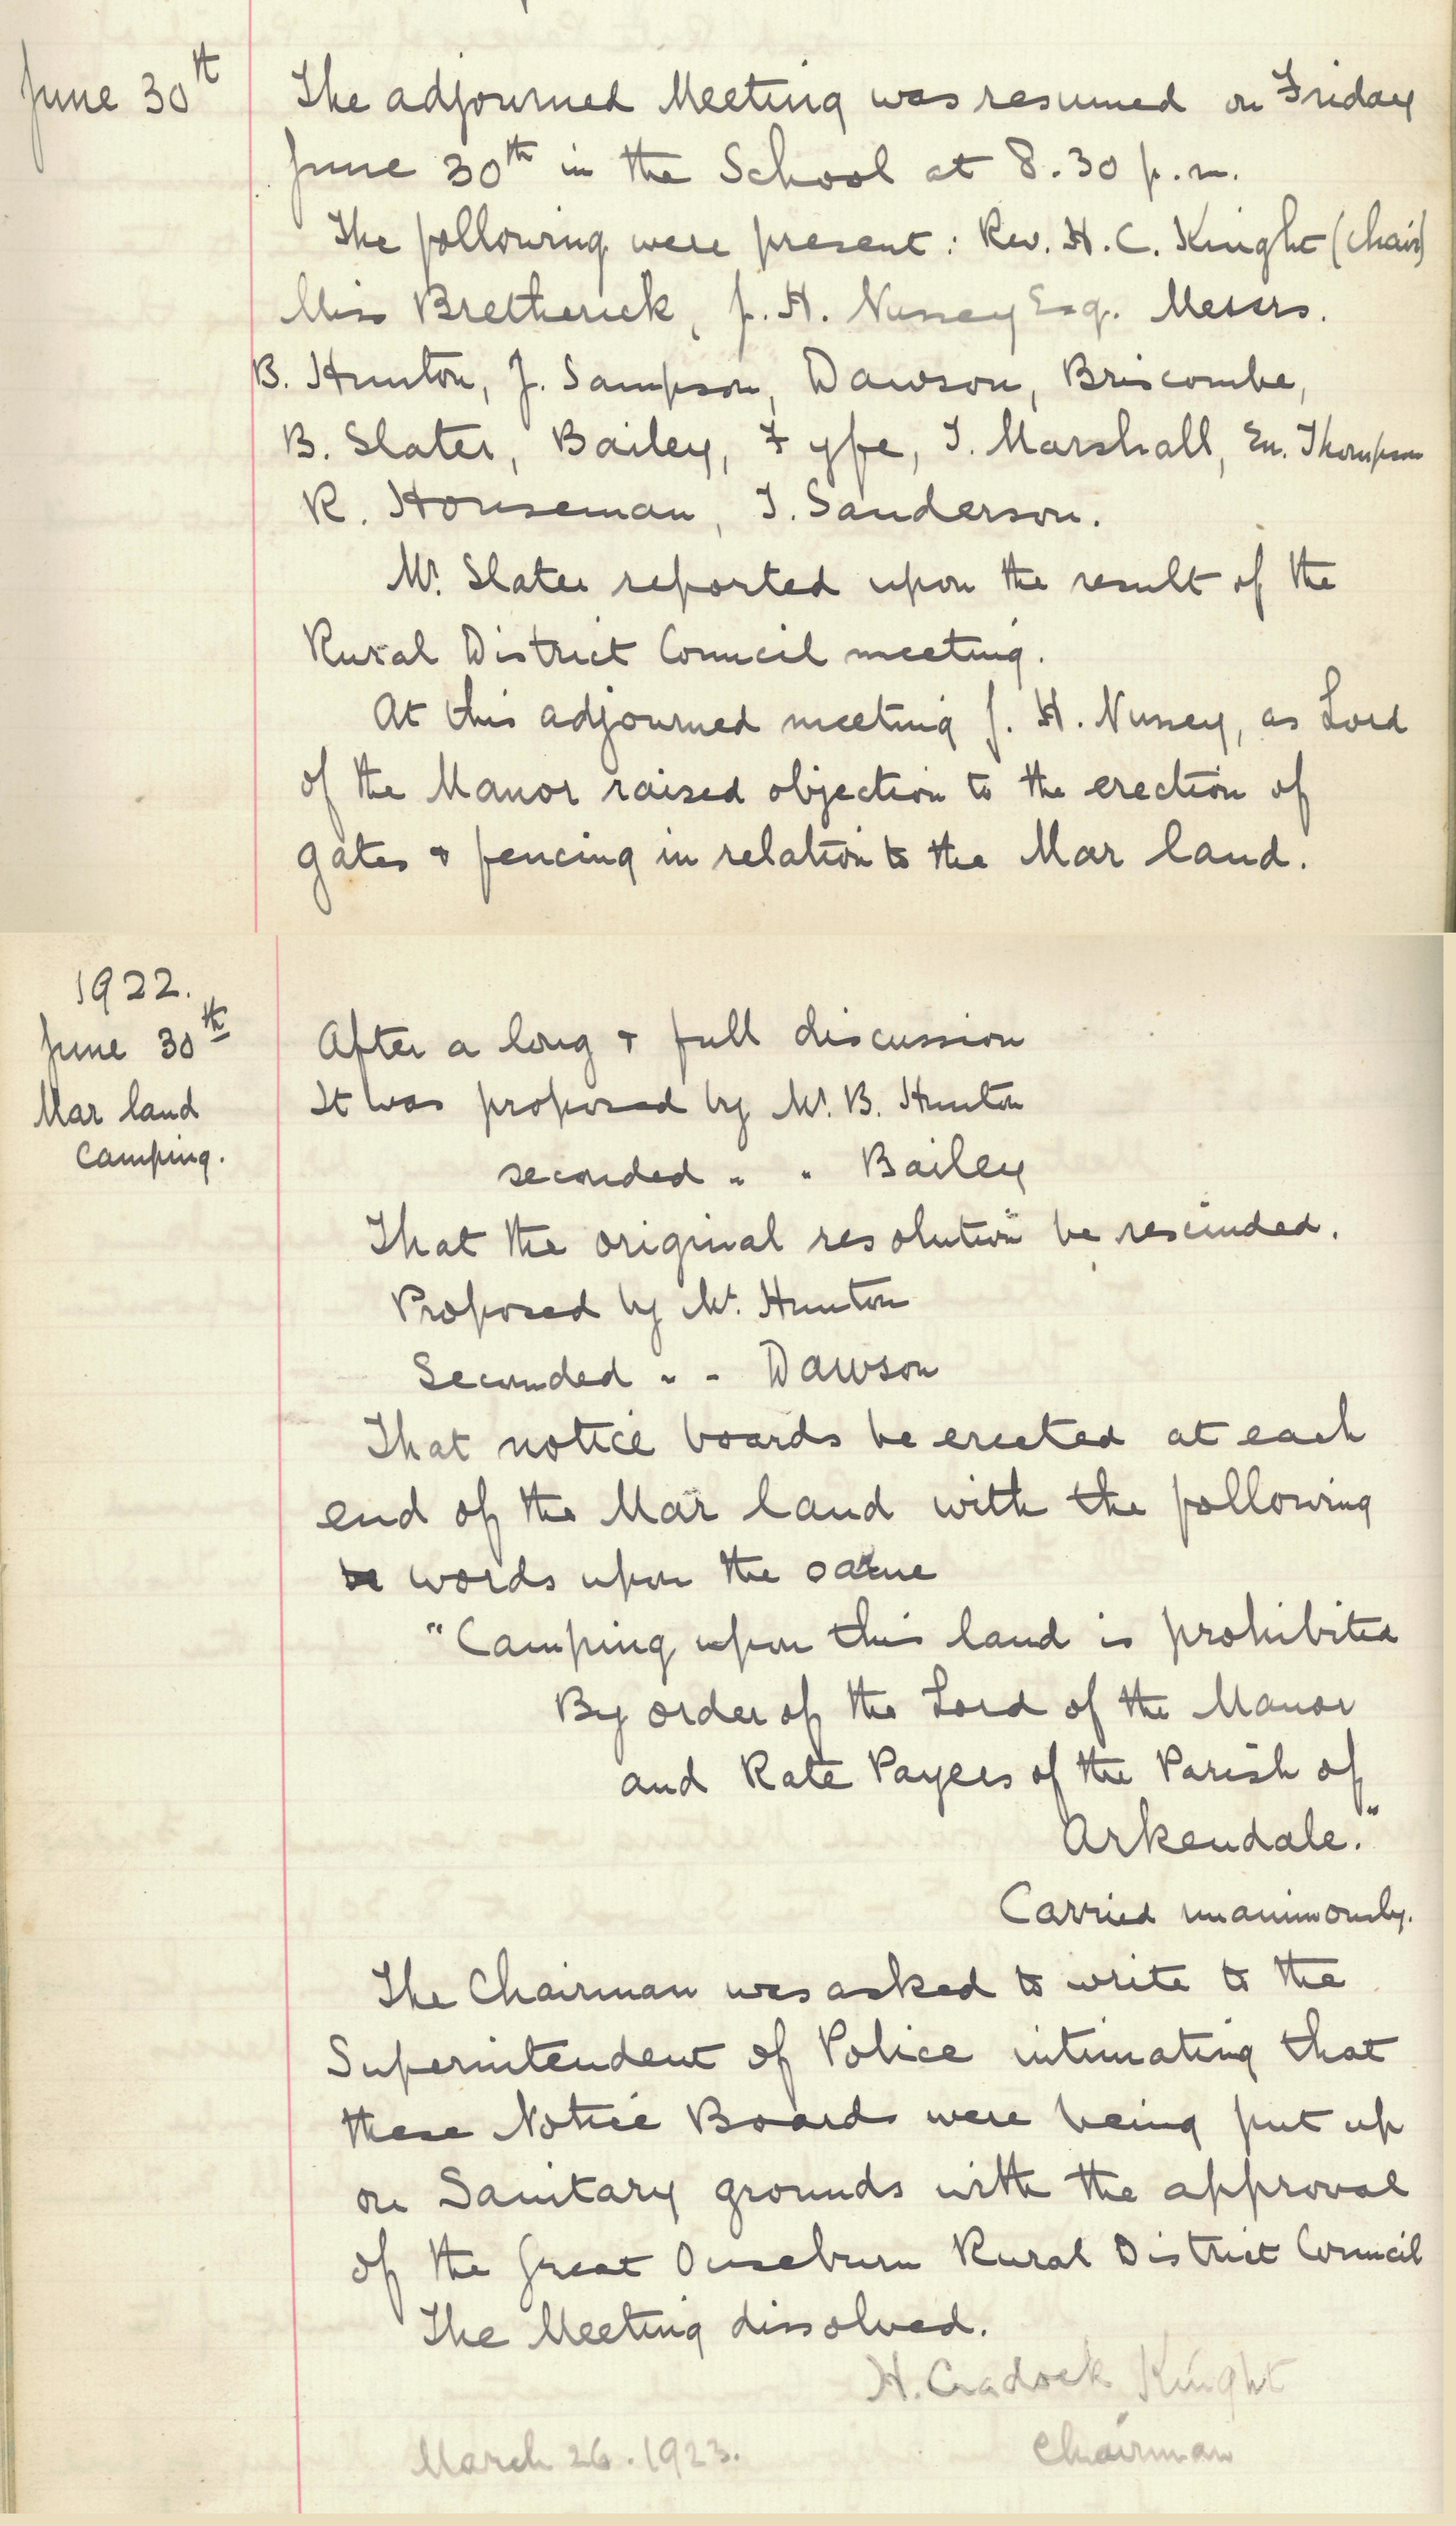 June 30th
The adjourned Meeting was resumed on Friday
June 30th in the School at 8.30 p.m.
The following were present: Rev. H. C. Knight (Chair)
Miss Bretherick, J. H. Nussey Esq. Messrs.
B. Hunton, J. Sampson, Dawson, Briscombe,
B. Slater, Bailey, Fyfe, T. Marshall, Em. Thompson
R. Houseman, T. Sanderson.
Mr. Slater reported upon the result of the
Rural District Council meeting.
At this adjourned meeting J. H. Nussey, as Lord
of the Manor raised objection to the erection of
gates & fencing in relation to the Mar land.
1922.
June 30th
Mar land
Camping.
After a long & full discussion
It was proposed by Mr. B. Hunton
seconded " " Bailey
That the original resolution be rescinded.
Proposed by Mr. Hunton
Seconded " " Dawson
That notice boards be erected at each
end of the Mar land with the following
words upon the same
"Camping upon this land is prohibited
By order of the Lord of the Manor
and Rate Payers of the Parish of
Arkendale."
Carried unanimously.
The Chairman was asked to write to the
Superintendent of Police intimating that
these Notice Boards were being put up
on Sanitary grounds with the approval
of the Great Ouseburn Rural District Council
The Meeting dissolved.
H. Cradock Knight
Chairman
March 26. 1923.